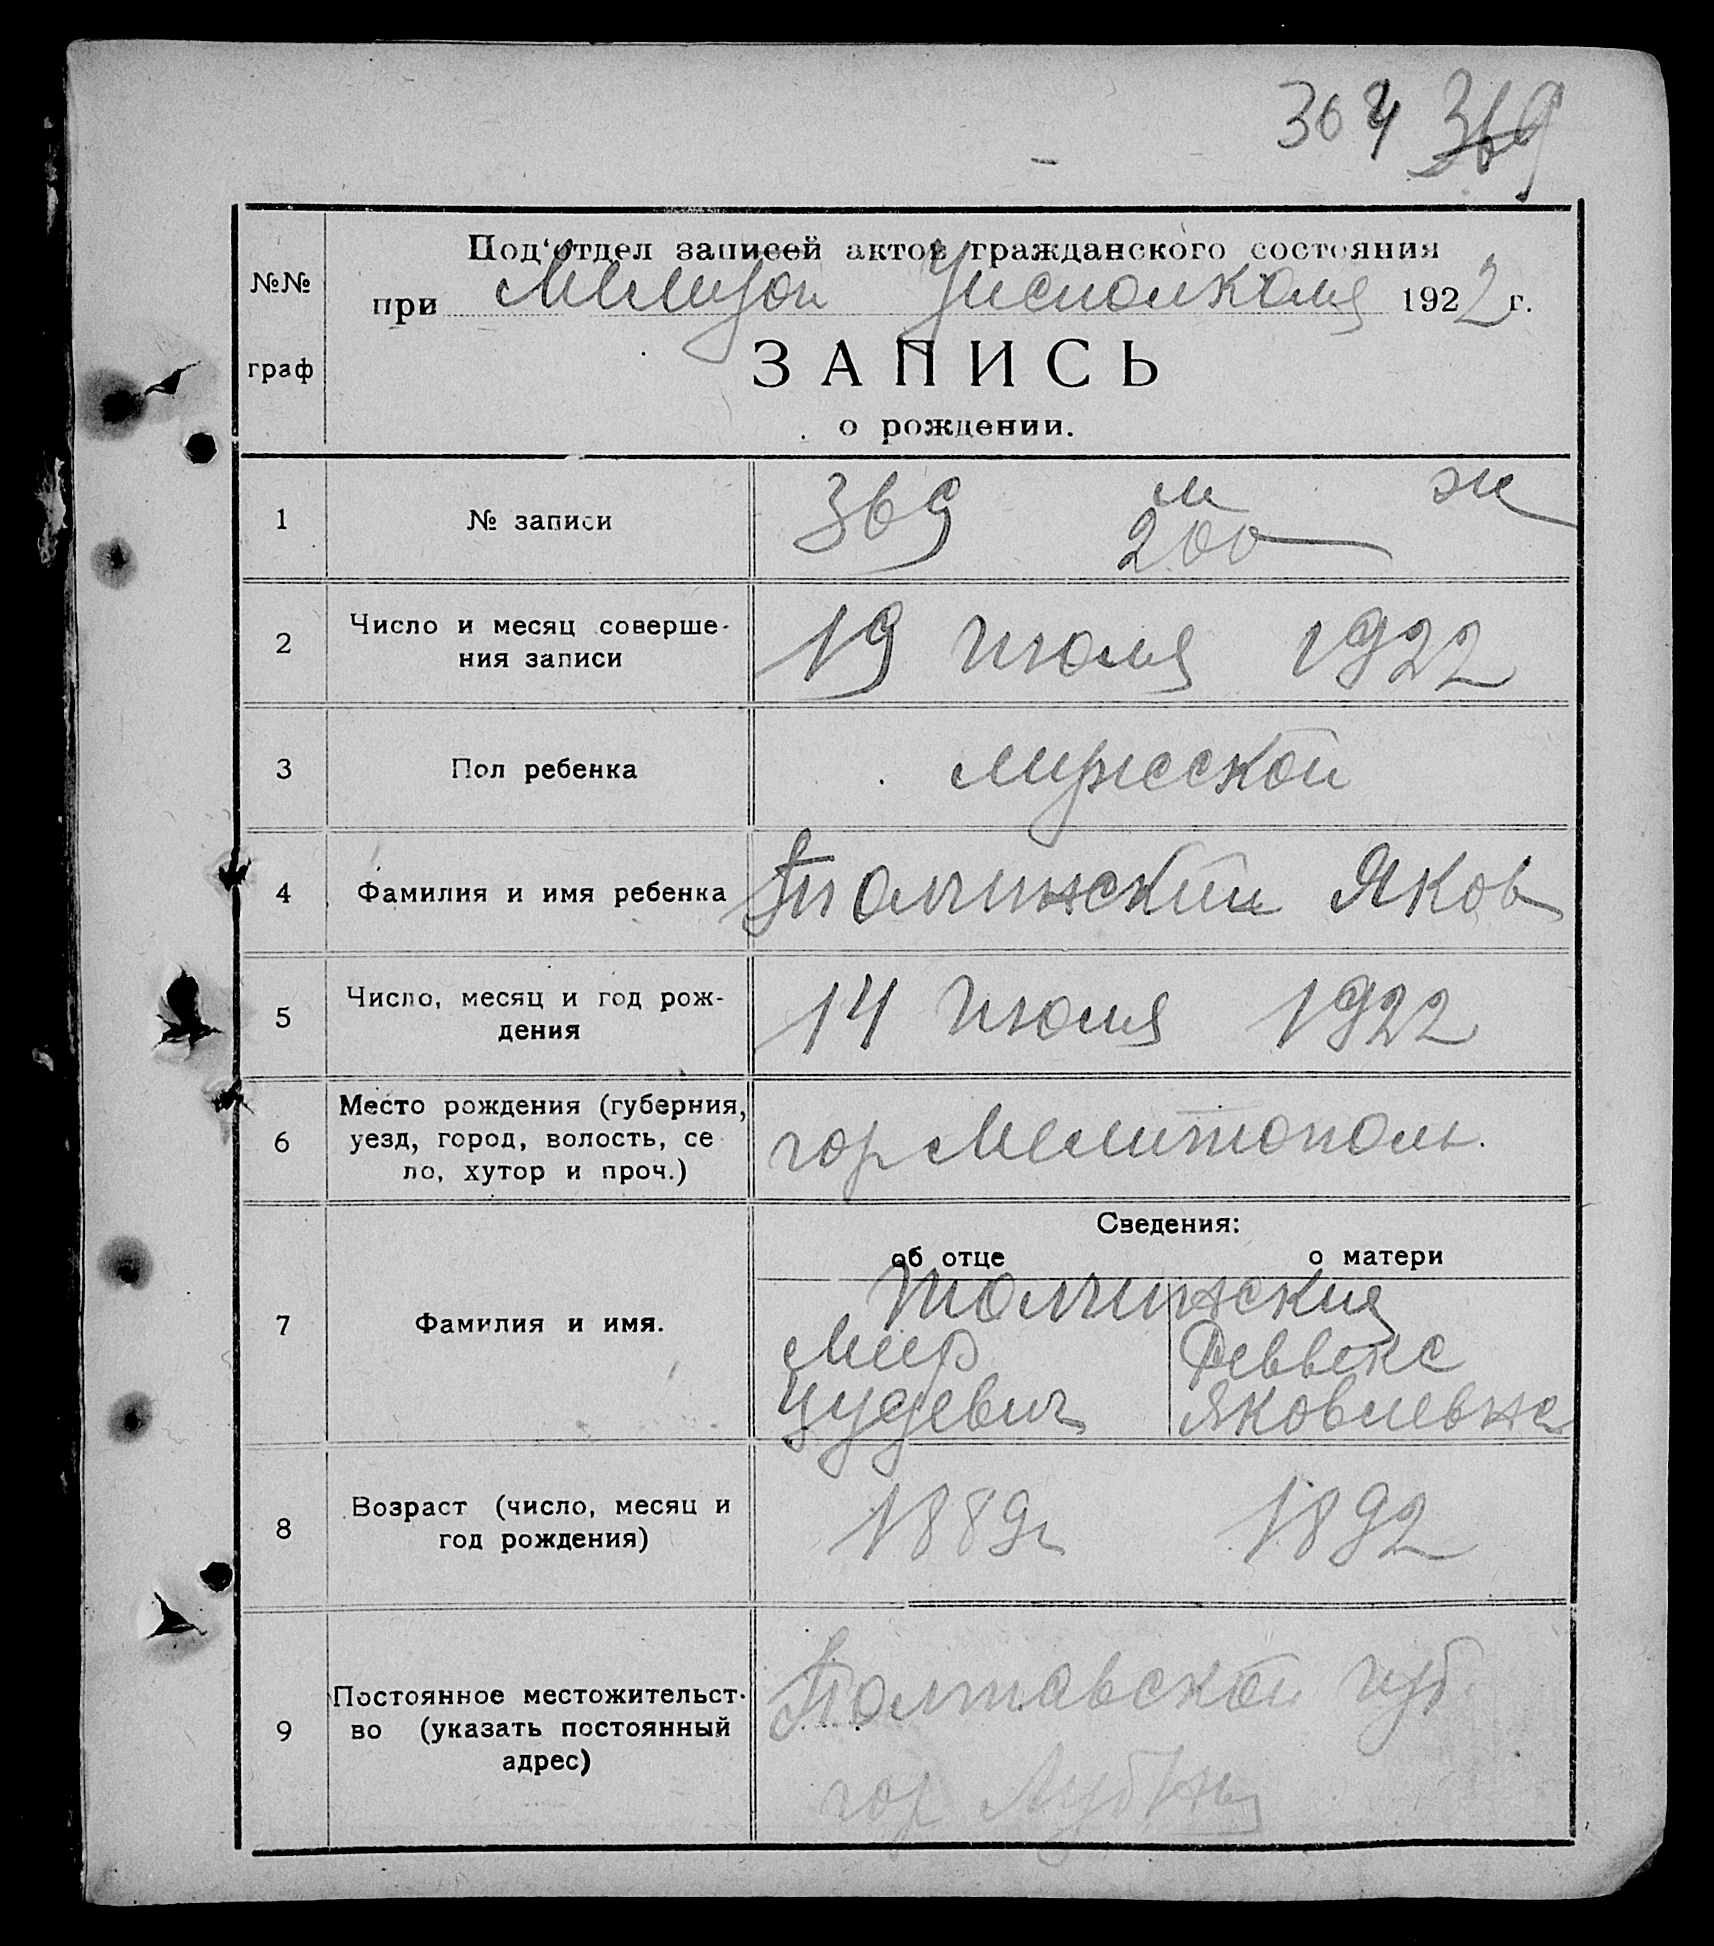 304 369
Под'отдел записей актов гражданского состояния
№№ при Мелитоп Уисполкома 1922 г.
граф
ЗАПИСЬ
о рождении.
1 № записи 369 м 200 ж
2 Число и месяц соверше-
ния записи 19 Июля 1922
3 Пол ребенка мужской
4 Фамилия и имя ребенка Толчинский Яков
5 Число, месяц и год рож-
дения 14 Июля 1922
6 Место рождения (губерния,
уезд, город, волость, се
ло, хутор и проч.) гор Мелитополь.
Сведения:
об отце о матери
7 Фамилия и имя.
Толчинския
Меер Реввека
Иудевич Яковлевна
8 Возраст (число, месяц и
год рождения) 1889г 1892
9 Постоянное местожительст-
во (указать постоянный
адрес)
Полтавской губ.
гор Лубны